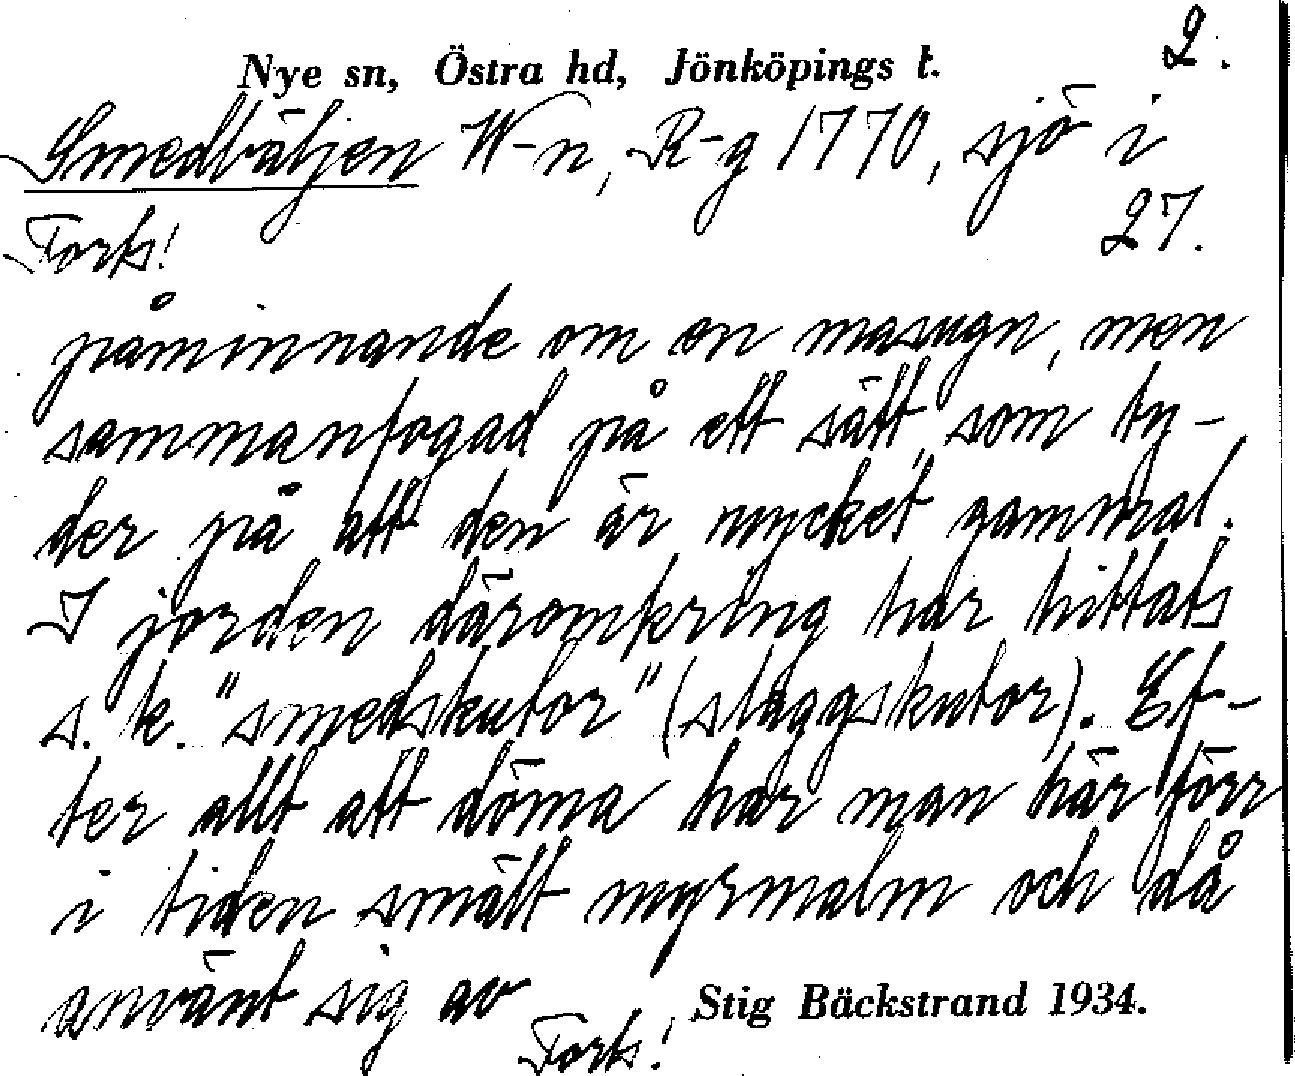 2.
Nye sn, Östra hd, Jönköpings l.
Smedbäljen W-n, R-g 1770, sjö i
Forts! 27.
påminnande om en masugn, men
sammanfogad på ett sätt, som ty-
der på att den är mycket gammal.
I jorden däromkring har hittats
s. k. "smedskutor" (slaggskutor). Ef-
ter allt att döma har man här förr
i tiden smält myrmalm och då
använt sig av
Forts! Stig Bäckstrand 1934.